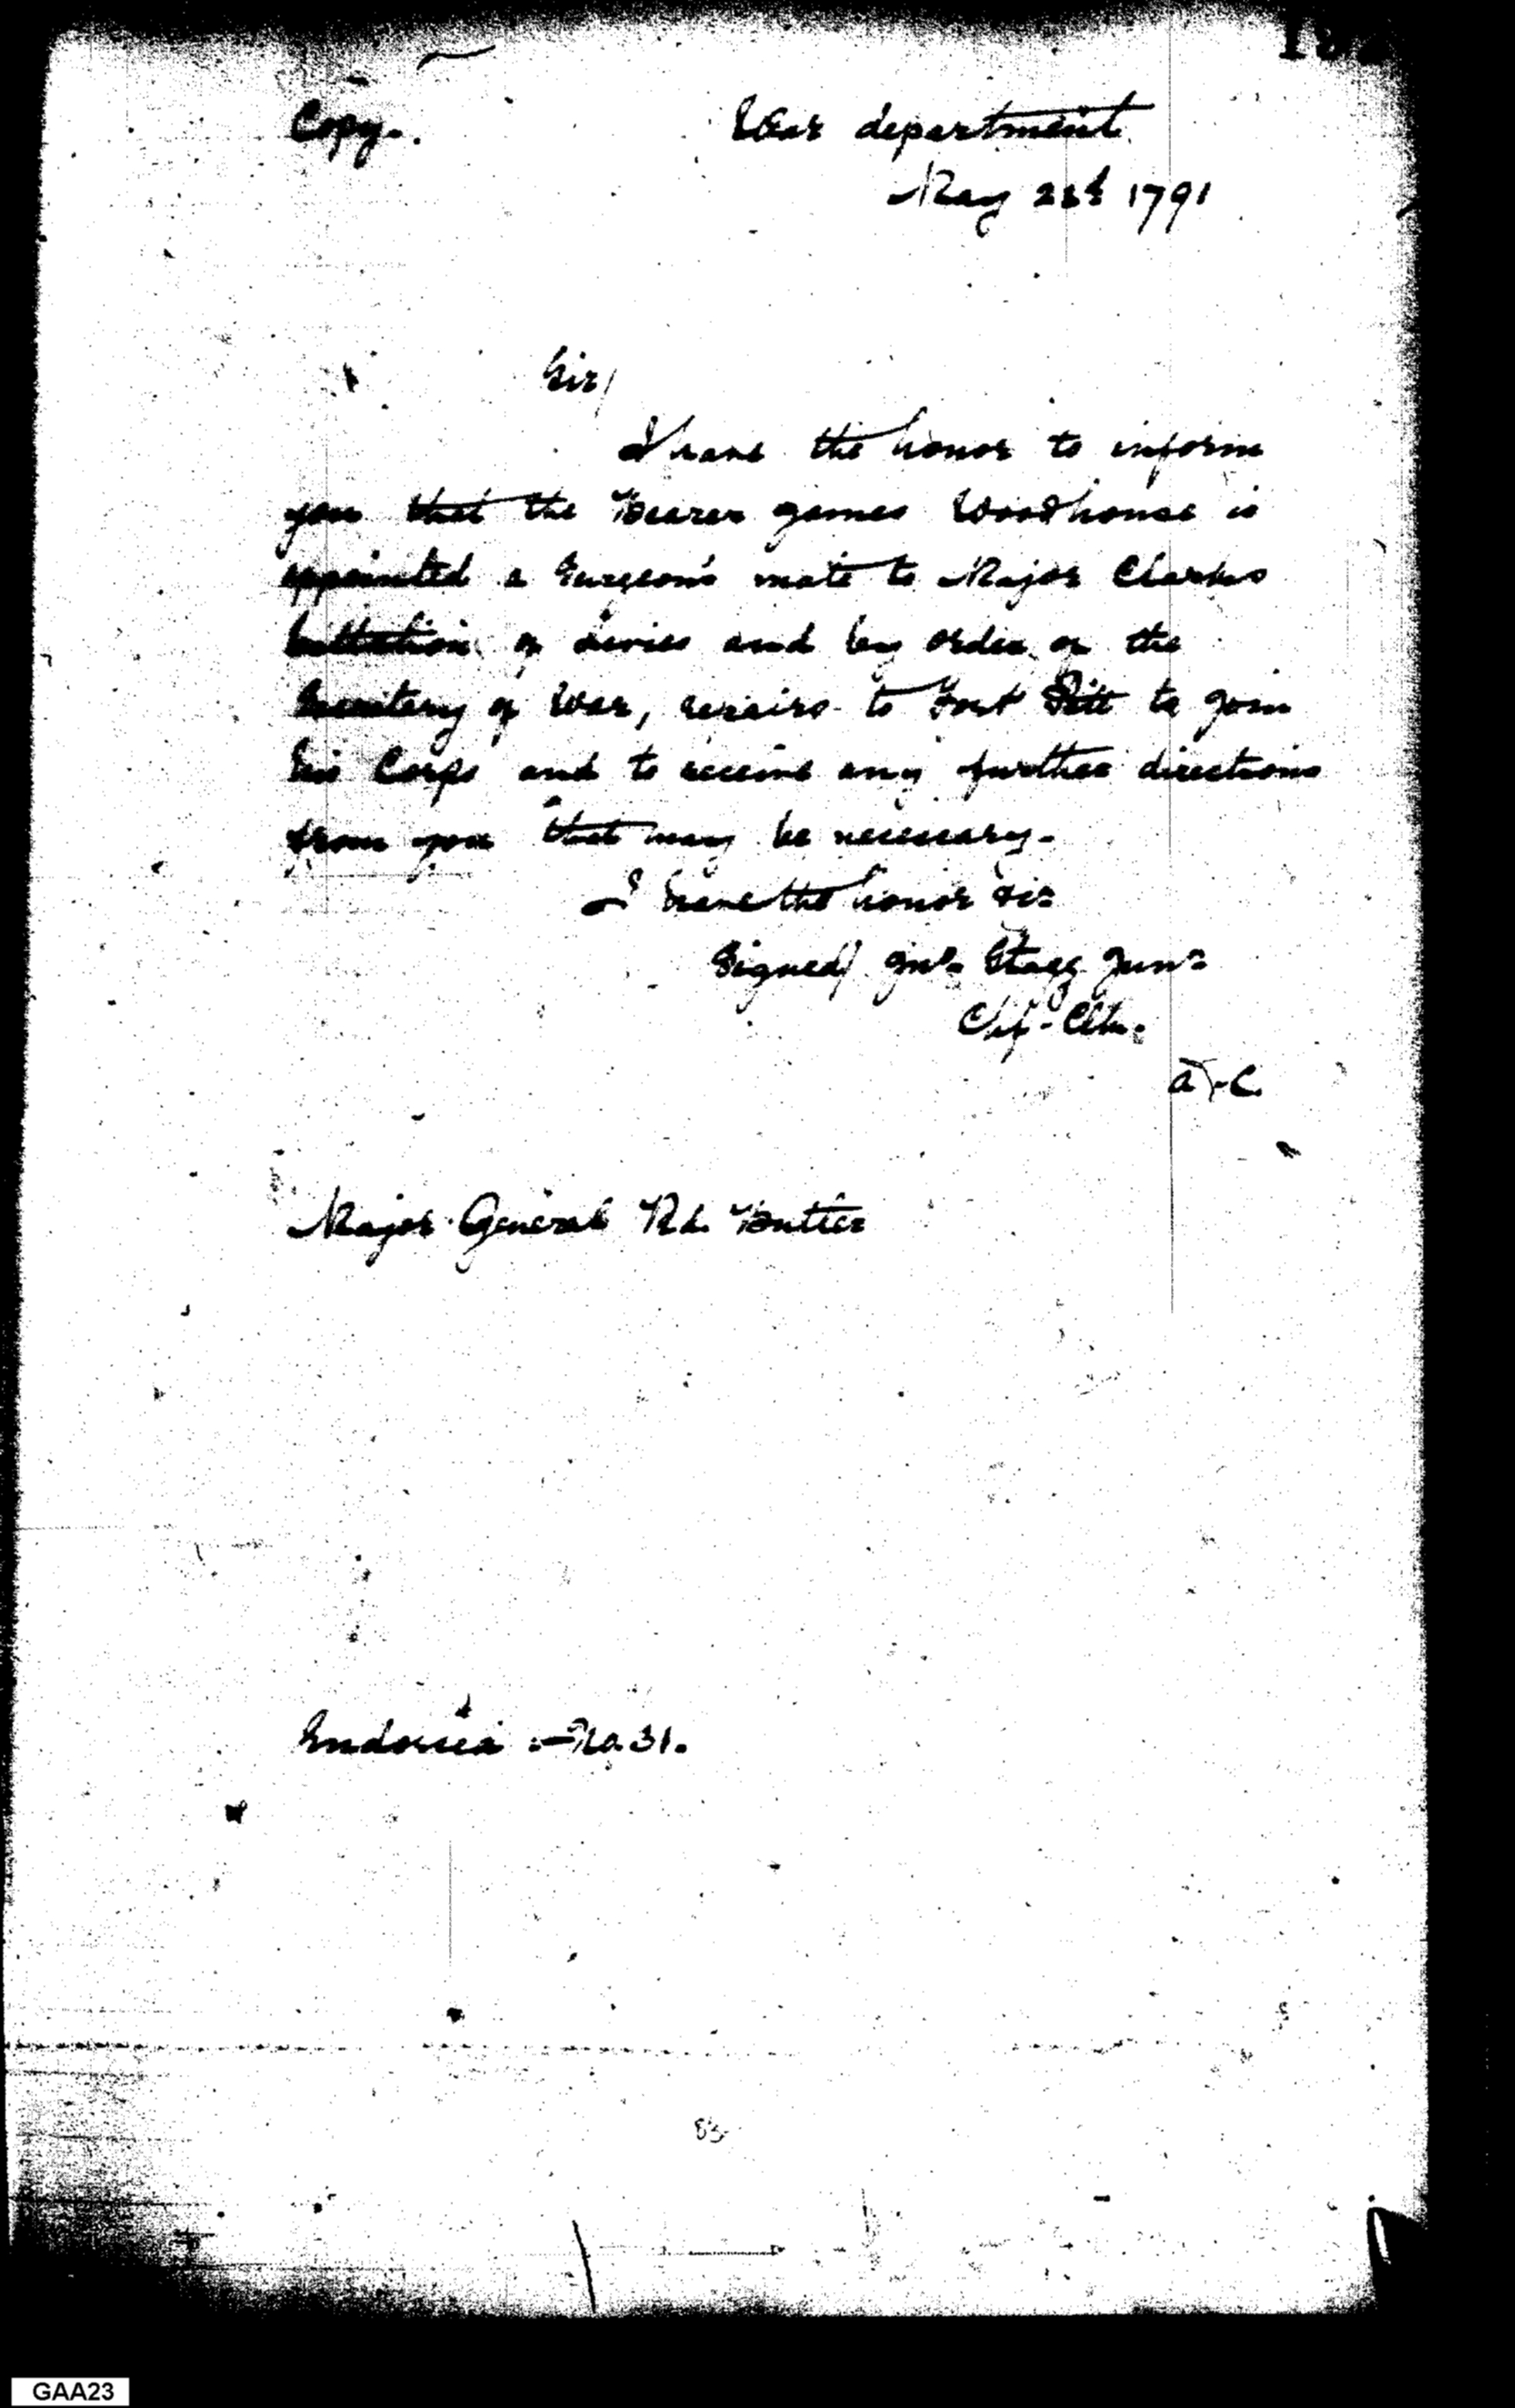 Copy.
War department
May 1791
Sir/
I have the honor to inform
you that the Bearer James Woodhouse is
appointed a Surgeon's mate to Major Clarks
battalion of levies and by order of the
Secretary of War, repairs to Fort Pitt to join
his Corps and to receive any further directions
from you that may be necessary-
I have the honor &c
Signed/ Jno. Stagg Junr
Chf - Clk.
Major General Rd. Butler
Endorsed :- No 31.
83
GAA23